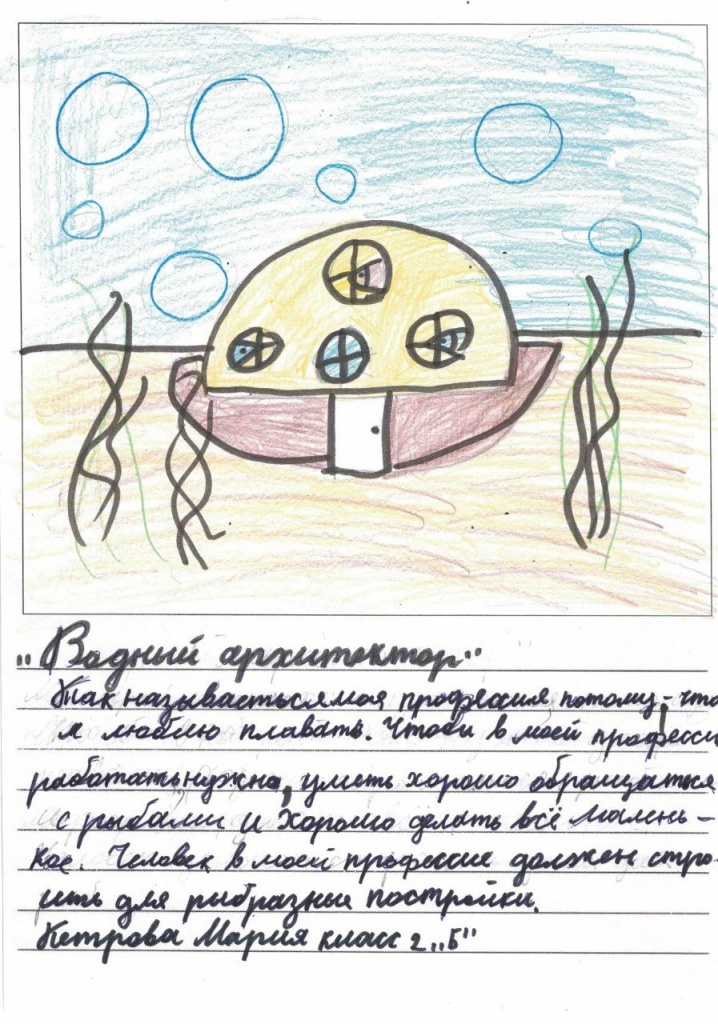 "Водный архитектор"
Так называеться моя профессия потому,- что
я люблю плавать. Чтоби в моей професси
работать нужно, уметь хорошо обращаться
с рыбами и хорошо делать всё малень-
кое. Человек в моей профессие должен стро-
ить для рыбразные постройки.
Петрова Мария класс 2 "Б"